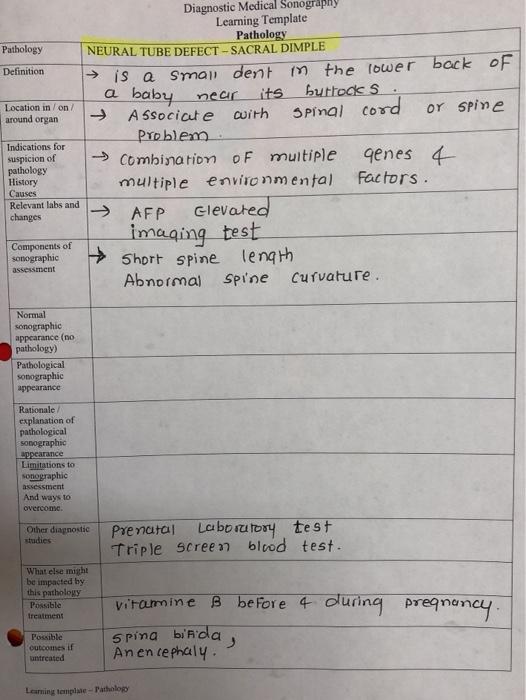 Diagnostic Medical Sonography
Learning Template
Pathology
Pathology
NEURAL TUBE DEFECT – SACRAL DIMPLE
Definition
→ is a small dent in the lower back of
a baby near its buttocks.
Location in / on /
around organ
→ Associate with spinal cord or spine
Problem.
Indications for
suspicion of
pathology
History
Causes
→ Combination of multiple genes &
multiple environmental Factors.
Relevant labs and
changes
→ AFP Elevated
imaging test
Components of
sonographic
assessment
→ Short spine length
Abnormal spine curvature.
Normal
sonographic
appearance (no
pathology)
Pathological
sonographic
appearance
Rationale /
explanation of
pathological
sonographic
appearance
Limitations to
sonographic
assessment
And ways to
overcome.
Other diagnostic
studies
Prenatal Laboratory test
Triple screen blood test.
What else might
be impacted by
this pathology
Possible
treatment
vitamine B before & during pregnancy.
Possible
outcomes if
untreated
spina bifida,
Anencephaly.
Learning template – Pathology